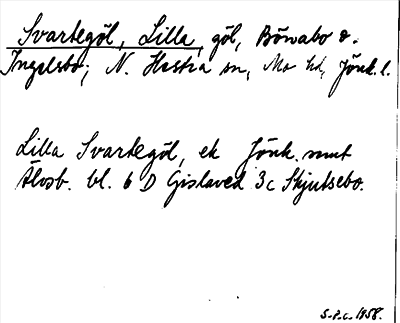 Svartegöl, Lilla, göl, Böwabo o.
Ingelsbo; N. Hestra sn, Mo hd, Jönk. l.
Lilla Svartegöl, ek Jönk. samt
Älvsb. bl. 6 D Gislaved 3c Skjutsebo.
S-P.C. 1958.